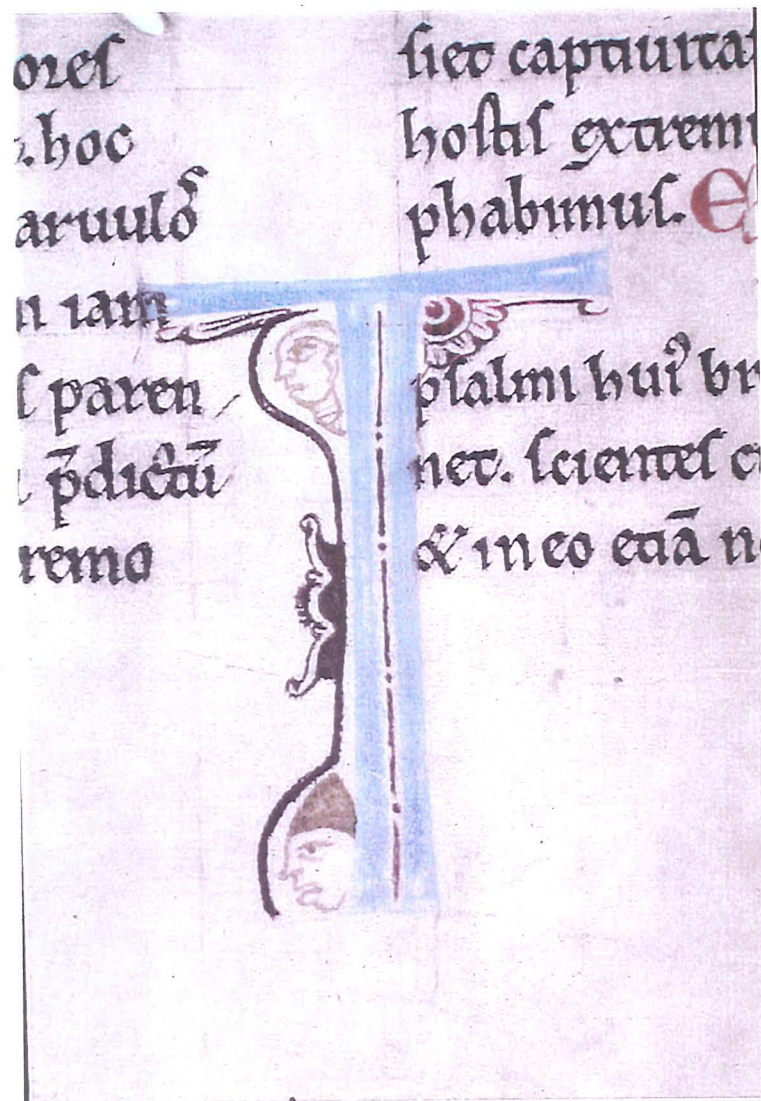 ores
. hoc
aruuloᷤ
n iam
s paren
p̄dictū
remo
siet captiuita
hostis extrem
phabimus. E
T
psalmi hui᷒ br
net. scientes c
& in eo etiā n